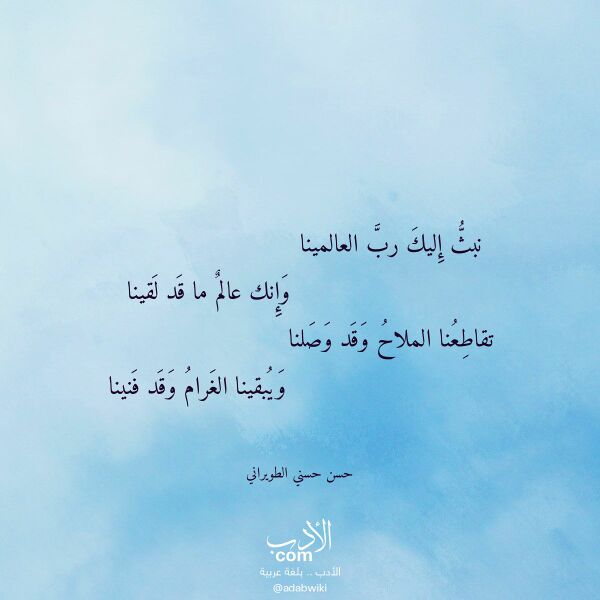 نبثُّ إِليكَ ربَّ العالمينا
وَإِنك عالمٌ ما قَد لَقينا
تقاطِعُنا الملاحُ وَقَد وَصَلنا
وَيُبقينا الغَرامُ وَقَد فَنينا
حسن حسني الطويراني
الأدب
com
الأدب .. بلغة عربية
@adabwiki